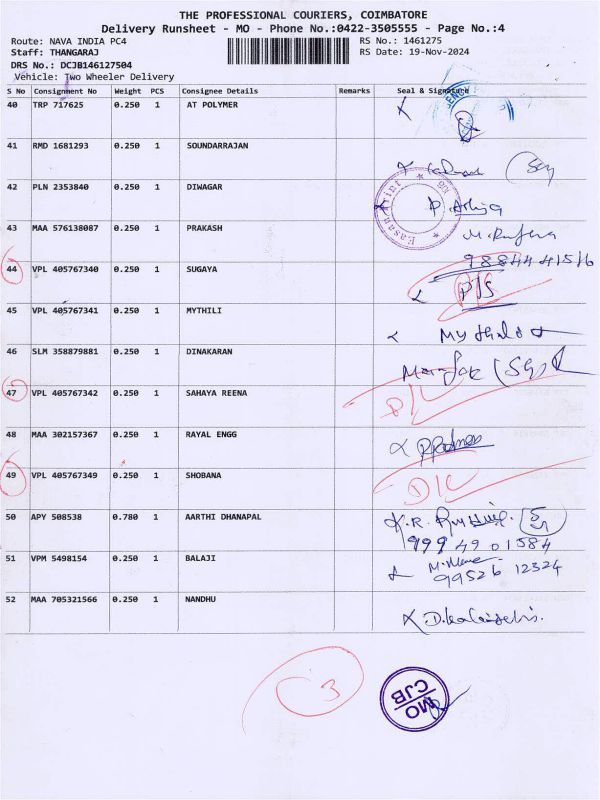 THE PROFESSIONAL COURIERS, COIMBATORE
Delivery Runsheet - MO - Phone No.:0422-3505555 - Page No.:4
Route: NAVA INDIA PC4 RS No.: 1461275
Staff: THANGARAJ RS Date: 19-Nov-2024
DRS No.: DCJB146127504
Vehicle: Two Wheeler Delivery
S No Consignment No Weight PCS Consignee Details Remarks Seal & Signature
40 TRP 717625 0.250 1 AT POLYMER
41 RMD 1681293 0.250 1 SOUNDARRAJAN
42 PLN 2353840 0.250 1 DIWAGAR
43 MAA 576138087 0.250 1 PRAKASH
44 VPL 405767340 0.250 1 SUGAYA
45 VPL 405767341 0.250 1 MYTHILI
46 SLM 358879881 0.250 1 DINAKARAN
47 VPL 405767342 0.250 1 SAHAYA REENA
48 MAA 302157367 0.250 1 RAYAL ENGG
49 VPL 405767349 0.250 1 SHOBANA
50 APY 508538 0.780 1 AARTHI DHANAPAL
99949 01584
51 VPM 5498154 0.250 1 BALAJI
99526 12324
52 MAA 705321566 0.250 1 NANDHU
3
MO
CJB